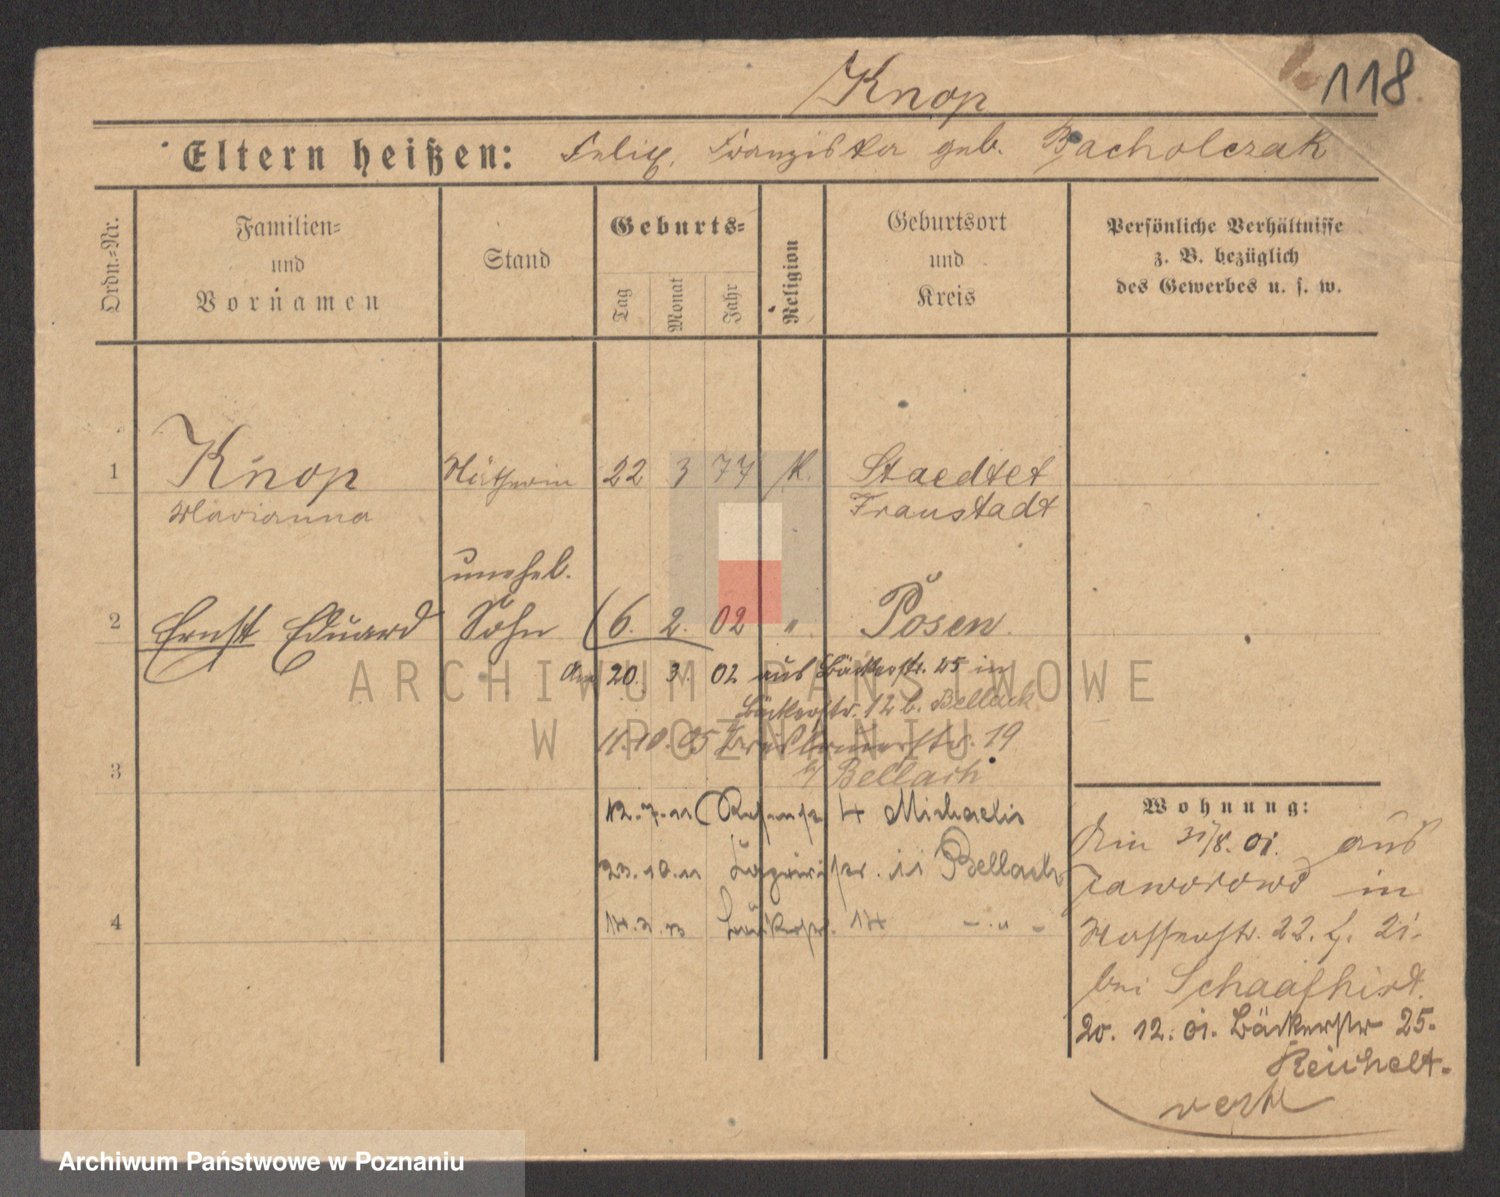 Knop
118
Eltern heißen: Felix, Franziska geb. Bacholczak
Ordn.=Nr.
Familien=
und
Vornamen
Stand
Geburts=
Tag
Monat
Jahr
Religion
Geburtsort
und
Kreis
Persönliche Verhältnisse
z. B. bezüglich
des Gewerbes u. s. w.
1 Knop Näherin 22 3 77 K. Staedtel
Marianna Fraustadt
unehel.
2 Ernst Eduard Sohn 6. 2. 02 " Posen
20. 3. 02 aus Bäckerstr. 25 in
Bäckerstr. 12 b. Bellach
11.10.05 19
b/ Bellach
3
12.7.11 4 Michaelis
23.10.11 11 Bellach
4 14 - " -
Wohnung:
Am 31/8. 01. aus
Jaworowo in
Wasserstr. 22. H. 2i.
bei Schaafhirt.
20. 12. 01. Bäckerstr 25.
Reichelt.
verh
ARCHIWUM PAŃSTWOWE
W POZNANIU
Archiwum Państwowe w Poznaniu